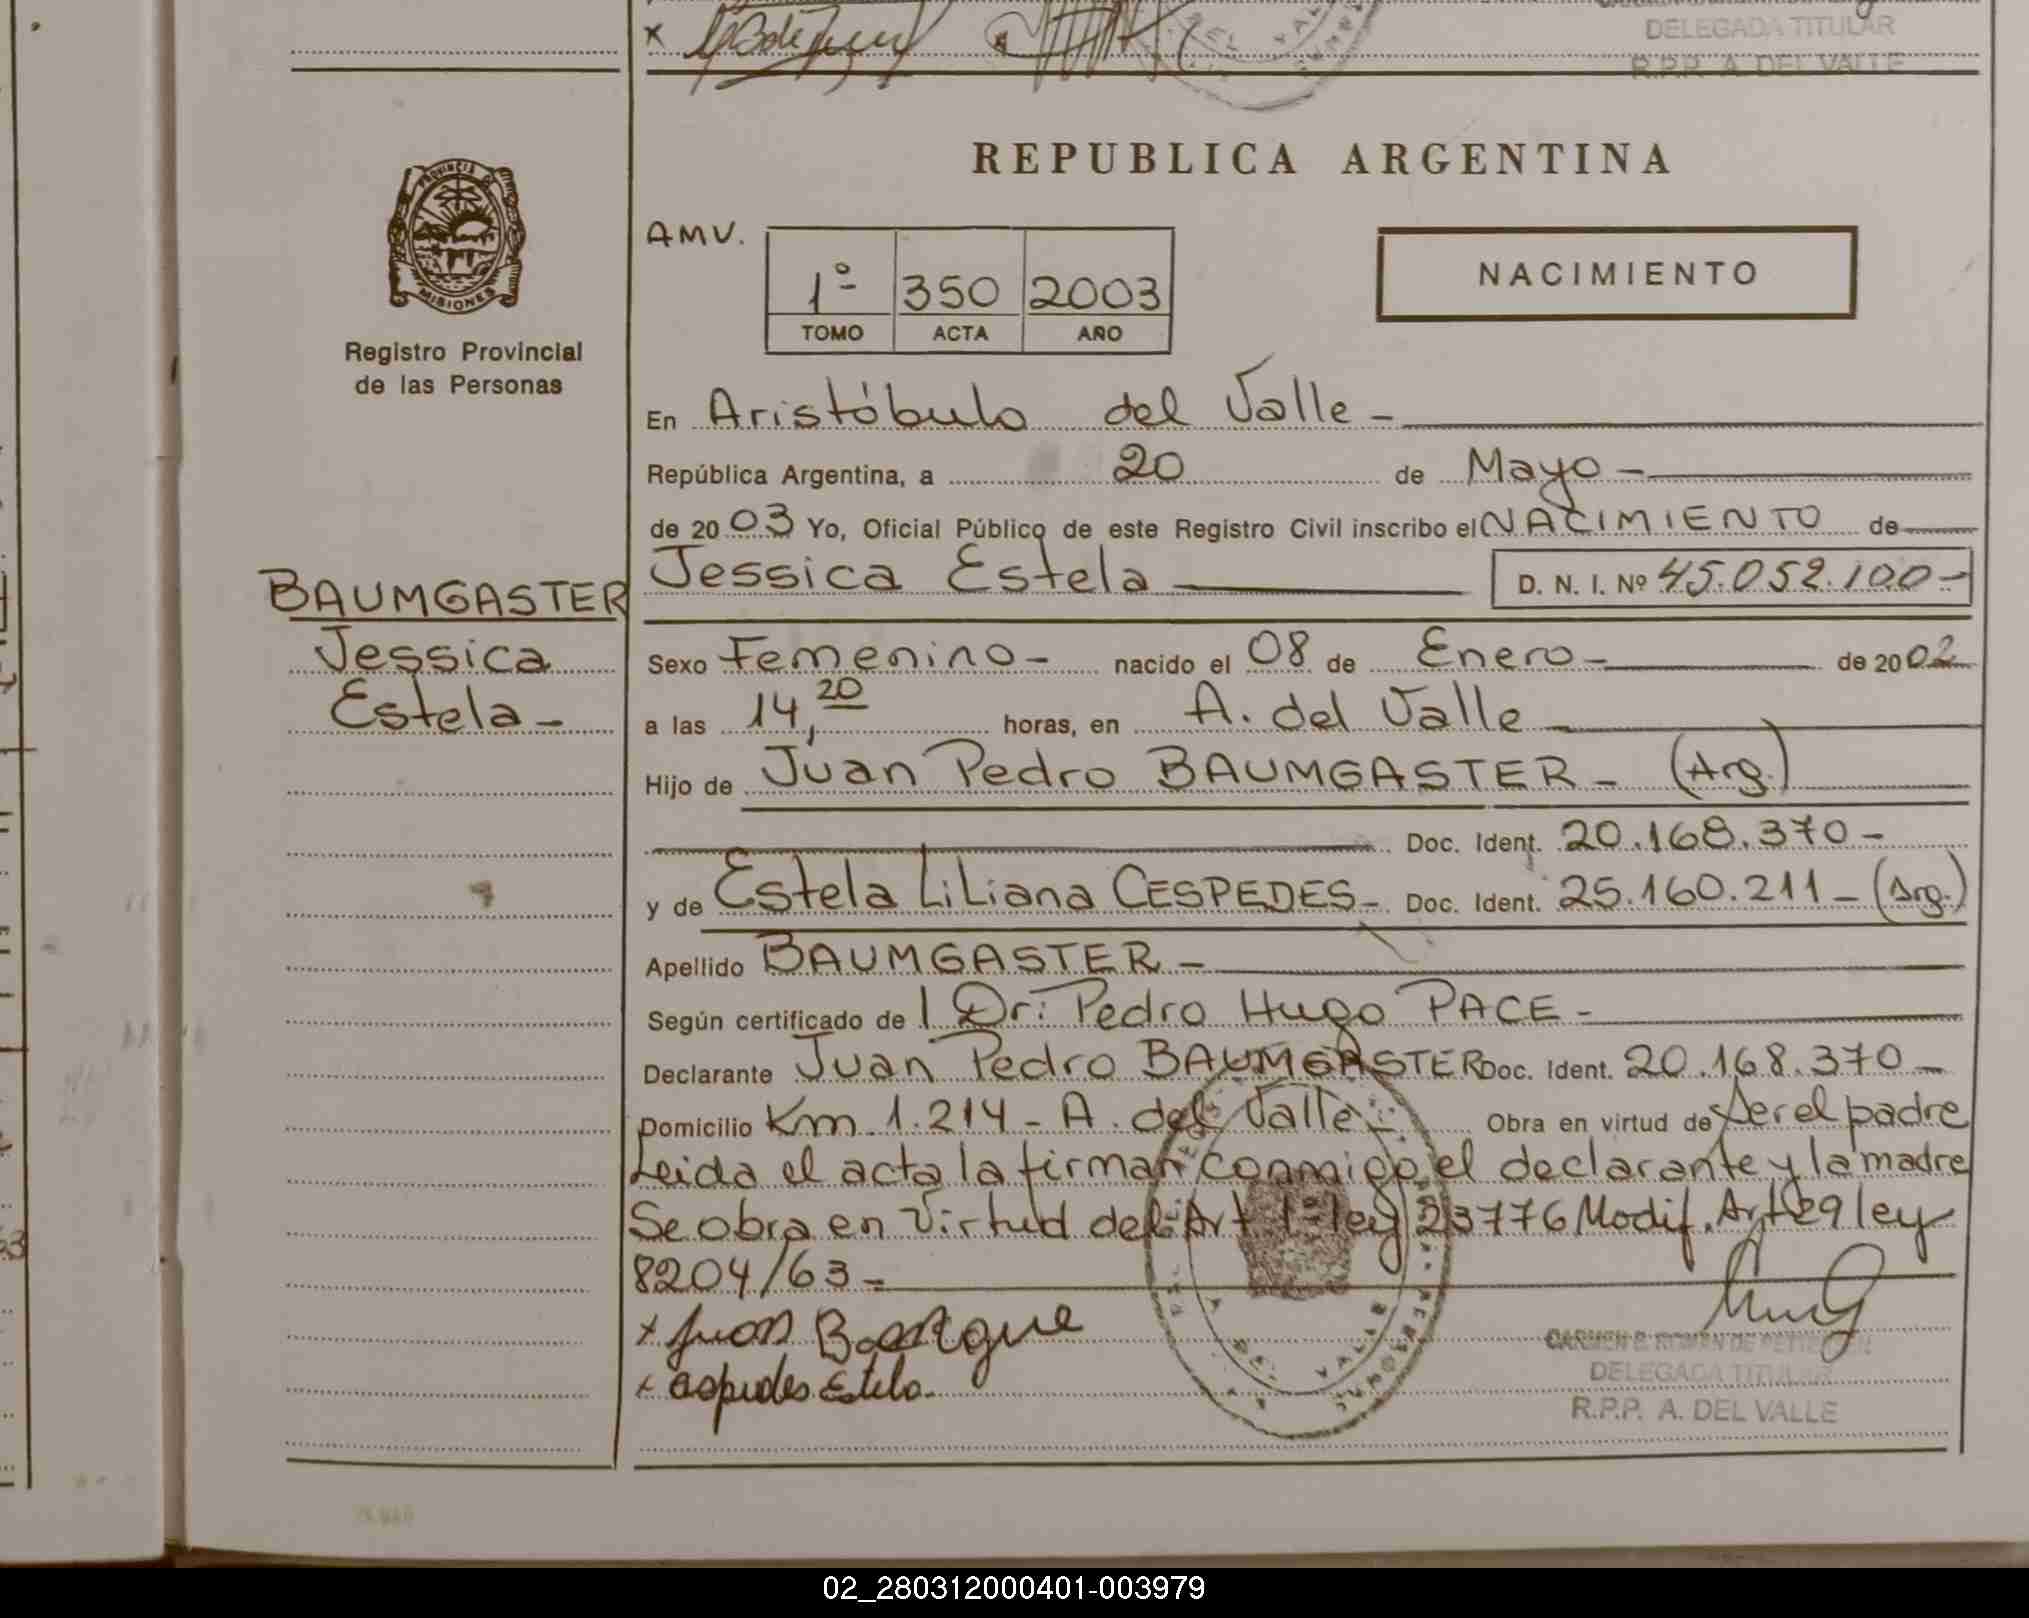 DELEGADA TITULAR
R.P.P. A. DEL VALLE
PROVINCIA DE
MISIONES
Registro Provincial
de las Personas
REPUBLICA ARGENTINA
AMV.
1º 350 2003
TOMO ACTA AÑO
NACIMIENTO
En Aristóbulo del Valle -
República Argentina, a 20 de Mayo -
de 2003 Yo, Oficial Público de este Registro Civil inscribo el NACIMIENTO de
Jessica Estela D. N. I. Nº 45.052.100-
BAUMGASTER
Jessica
Estela -
Sexo Femenino - nacido el 08 de Enero - de 2002
a las 14,20 horas, en A. del Valle -
Hijo de Juan Pedro BAUMGASTER - (Arg.)
Doc. Ident. 20.168.370 -
y de Estela Liliana CESPEDES - Doc. Ident. 25.160.211 - (Arg.)
Apellido BAUMGASTER -
Según certificado de l Dr: Pedro Hugo PACE -
Declarante Juan Pedro BAUMGASTER Doc. Ident. 20.168.370 -
Domicilio Km. 1.214 - A. del Valle - Obra en virtud de ser el padre
Leida el acta la firman conmigo el declarante y la madre
Se obra en virtud del Art 1º ley 23776 Modif. Art 29 ley
8204/63 -
x Juan
x cespedes Estela.
CARMEN B. ROMAN DE
DELEGADA TITULAR
R.P.P. A. DEL VALLE
02_280312000401-003979